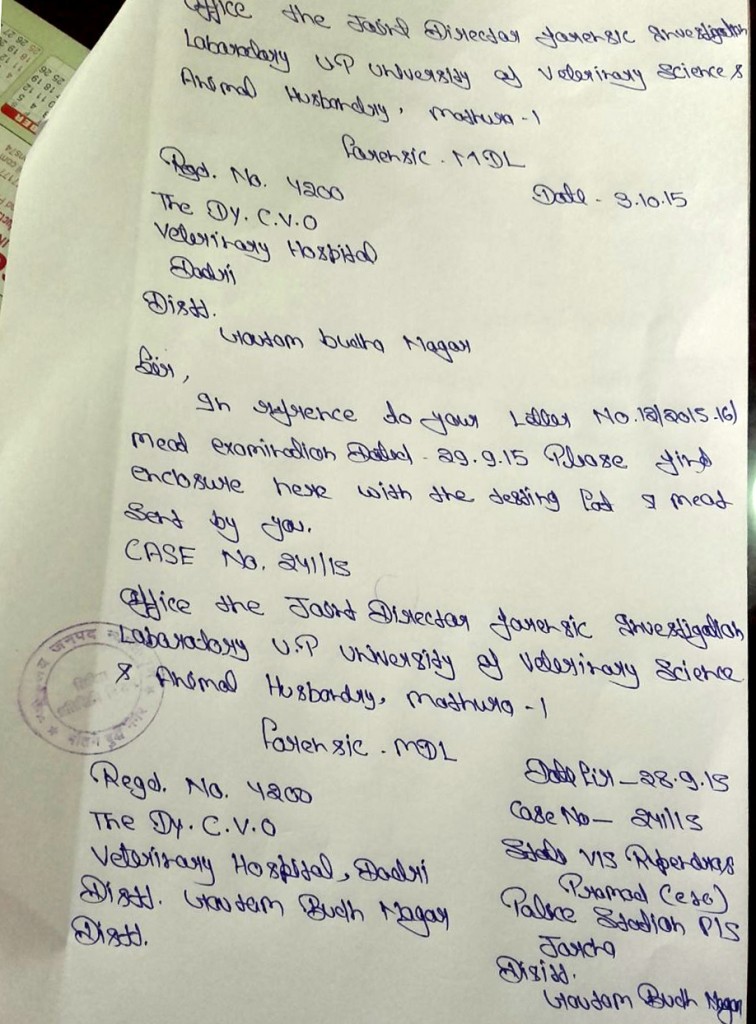 Office the Joint Director forensic Investigation
Labaradory U.P University of Veterinary Science &
Animal Husbandry, Mathura-1
Forensic. MDL
Regd. No. 4200
Date - 3.10.15
The Dy. C.V.O
Veterinary Hospital
Dadri
Distt.
Gautam budha Nagar
Sir,
In refrence to your Letter No. 12/2015-16/
meat examination Dated - 29.9.15 Please find
enclosure here with the testing of meat
Sent by you.
CASE No. 241/15
Office the Joint Director forensic Investigation
Labaradory U.P University of Veterinary Science
& Animal Husbandry, Mathura-1
Forensic. MDL
Regd. No. 4200
The Dy. C.V.O
Veterinary Hospital, Dadri
Distt. Gautam Budh Nagar
Distt.
Date Fir - 28.9.15
Case No - 241/15
State V/S Rupendra
Pramod (etc)
Police Station P/S
Jarcha
Disitt.
Gautam Budh Nagar
जनपद
गौतम बुद्ध नगर